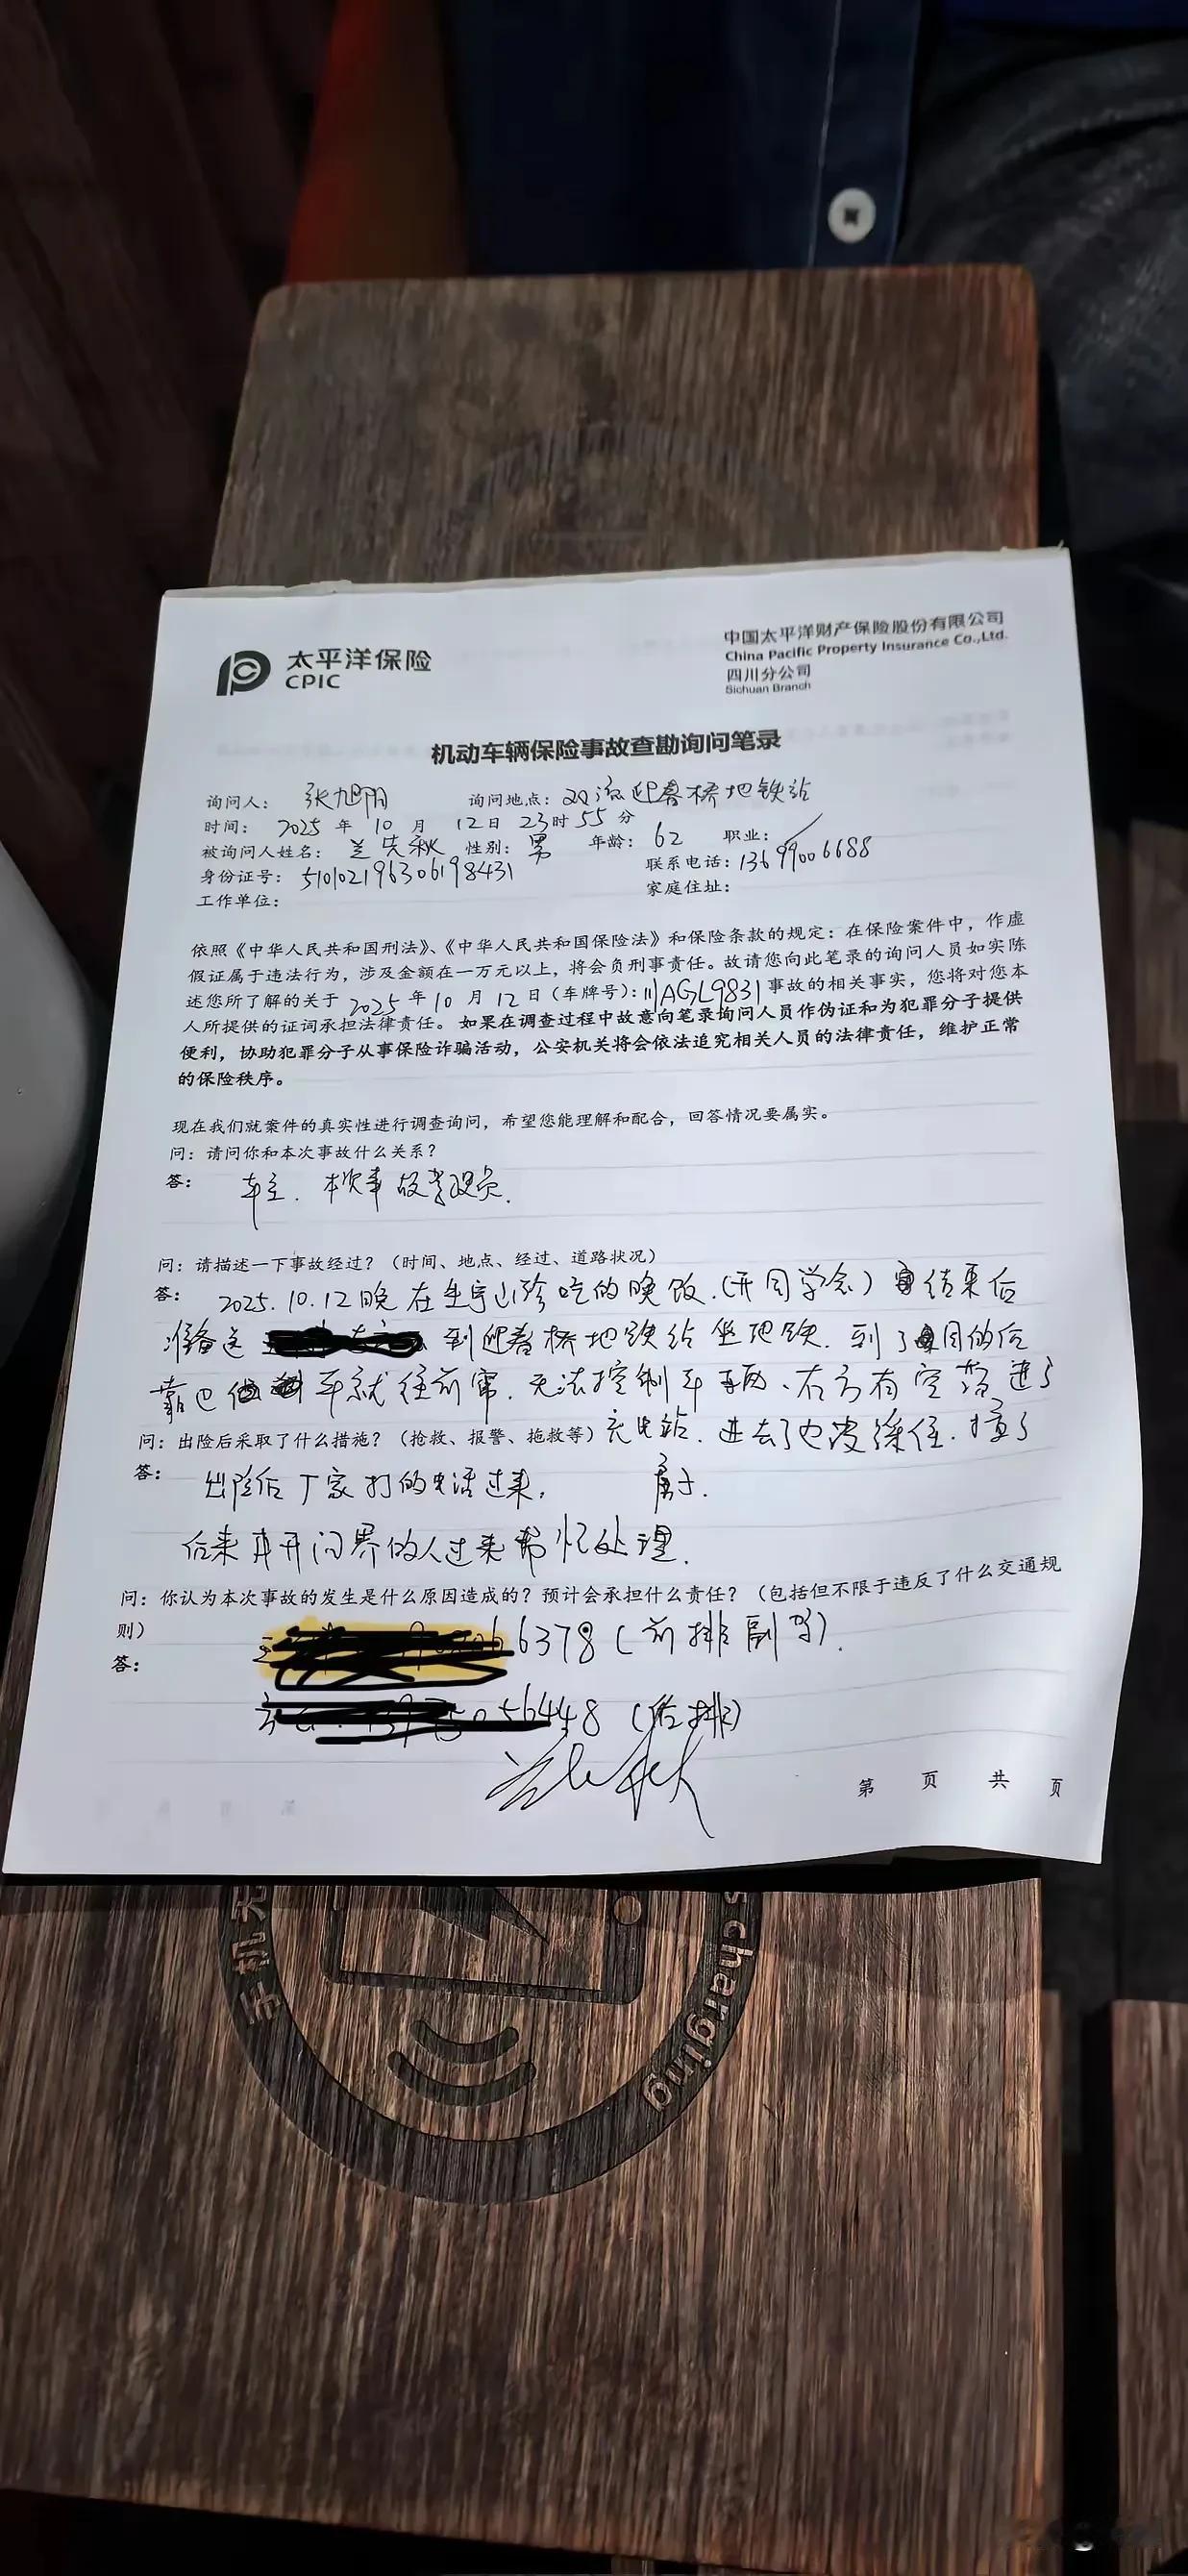 太平洋保险
CPIC
中国太平洋财产保险股份有限公司
China Pacific Property Insurance Co.,Ltd.
四川分公司
Sichuan Branch
机动车辆保险事故查勘询问笔录
询问人： 张旭阳 询问地点：双流迎春桥地铁站
时间： 2025 年 10 月 12日 23时 55 分
被询问人姓名： 兰先秋 性别： 男 年龄： 62 职业：
身份证号： 510102196306198431 联系电话：13699006688
工作单位： 家庭住址：
依照《中华人民共和国刑法》、《中华人民共和国保险法》和保险条款的规定：在保险案件中，作虚
假证属于违法行为，涉及金额在一万元以上，将会负刑事责任。故请您向此笔录的询问人员如实陈
述您所了解的关于 2025 年 10 月 12 日（车牌号）：川AGL9831 事故的相关事实，您将对您本
人所提供的证词承担法律责任。如果在调查过程中故意向笔录询问人员作伪证和为犯罪分子提供
便利，协助犯罪分子从事保险诈骗活动，公安机关将会依法追究相关人员的法律责任，维护正常
的保险秩序。
现在我们就案件的真实性进行调查询问，希望您能理解和配合，回答情况要属实。
问：请问你和本次事故什么关系？
答： 车主．本次事故驾驶员．
问：请描述一下事故经过？（时间、地点、经过、道路状况）
答： 2025.10.12晚在 山珍吃的晚饭．（开同学会）结束后
准备送 到迎春桥地铁站坐地铁．到了目的后
靠边 车就往前窜．无法控制车辆、右方有空 进了
问：出险后采取了什么措施？（抢救、报警、拖救等） 充电站．进去了也没 住．撞了
答： 出险后厂家打的电话过来， 房子．
后来再开问界的人过来帮忙处理．
问：你认为本次事故的发生是什么原因造成的？预计会承担什么责任？（包括但不限于违反了什么交通规
则）
答：
6378（前排副驾）．
56448（后排）
兰先秋
第 页 共 页
手机无
scharging